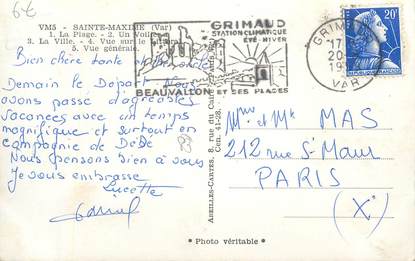 6€
VM5 - SAINTE-MAXIME (Var)
1. La Plage. - 2. Un Voilier
3. La Ville. - 4. Vue
5. Vue générale.
GRIMAUD
STATION CLIMATIQUE
ÉTÉ - HIVER
BEAUVALLON ET SES PLAGES
GRIMAUD
17
VAR
20F
Bien chère tante et
Demain le Départ Nous
avons passé d'agréables
vacances avec un temps
magnifique et surtout en
compagnie de Dédé
Nous pensons bien à vous
Je vous embrasse
Lucette
83
ABEILLES-CARTES, 8, rue du Caire
Cen. 41-28.
Mme et Mr MAS
212 rue St Maur
PARIS
(X°)
* Photo véritable *